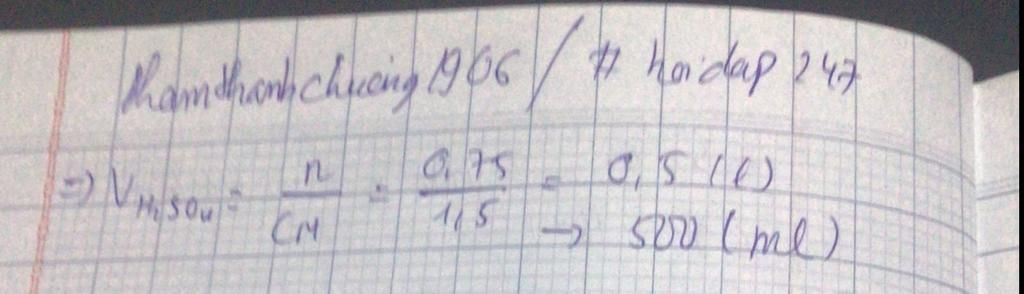 phamthanhchuong1906 / # hoidap 247
=> V H₂SO₄ = n / CM = 0,75 / 1,5 = 0,5 (l)
→ 500 (ml)